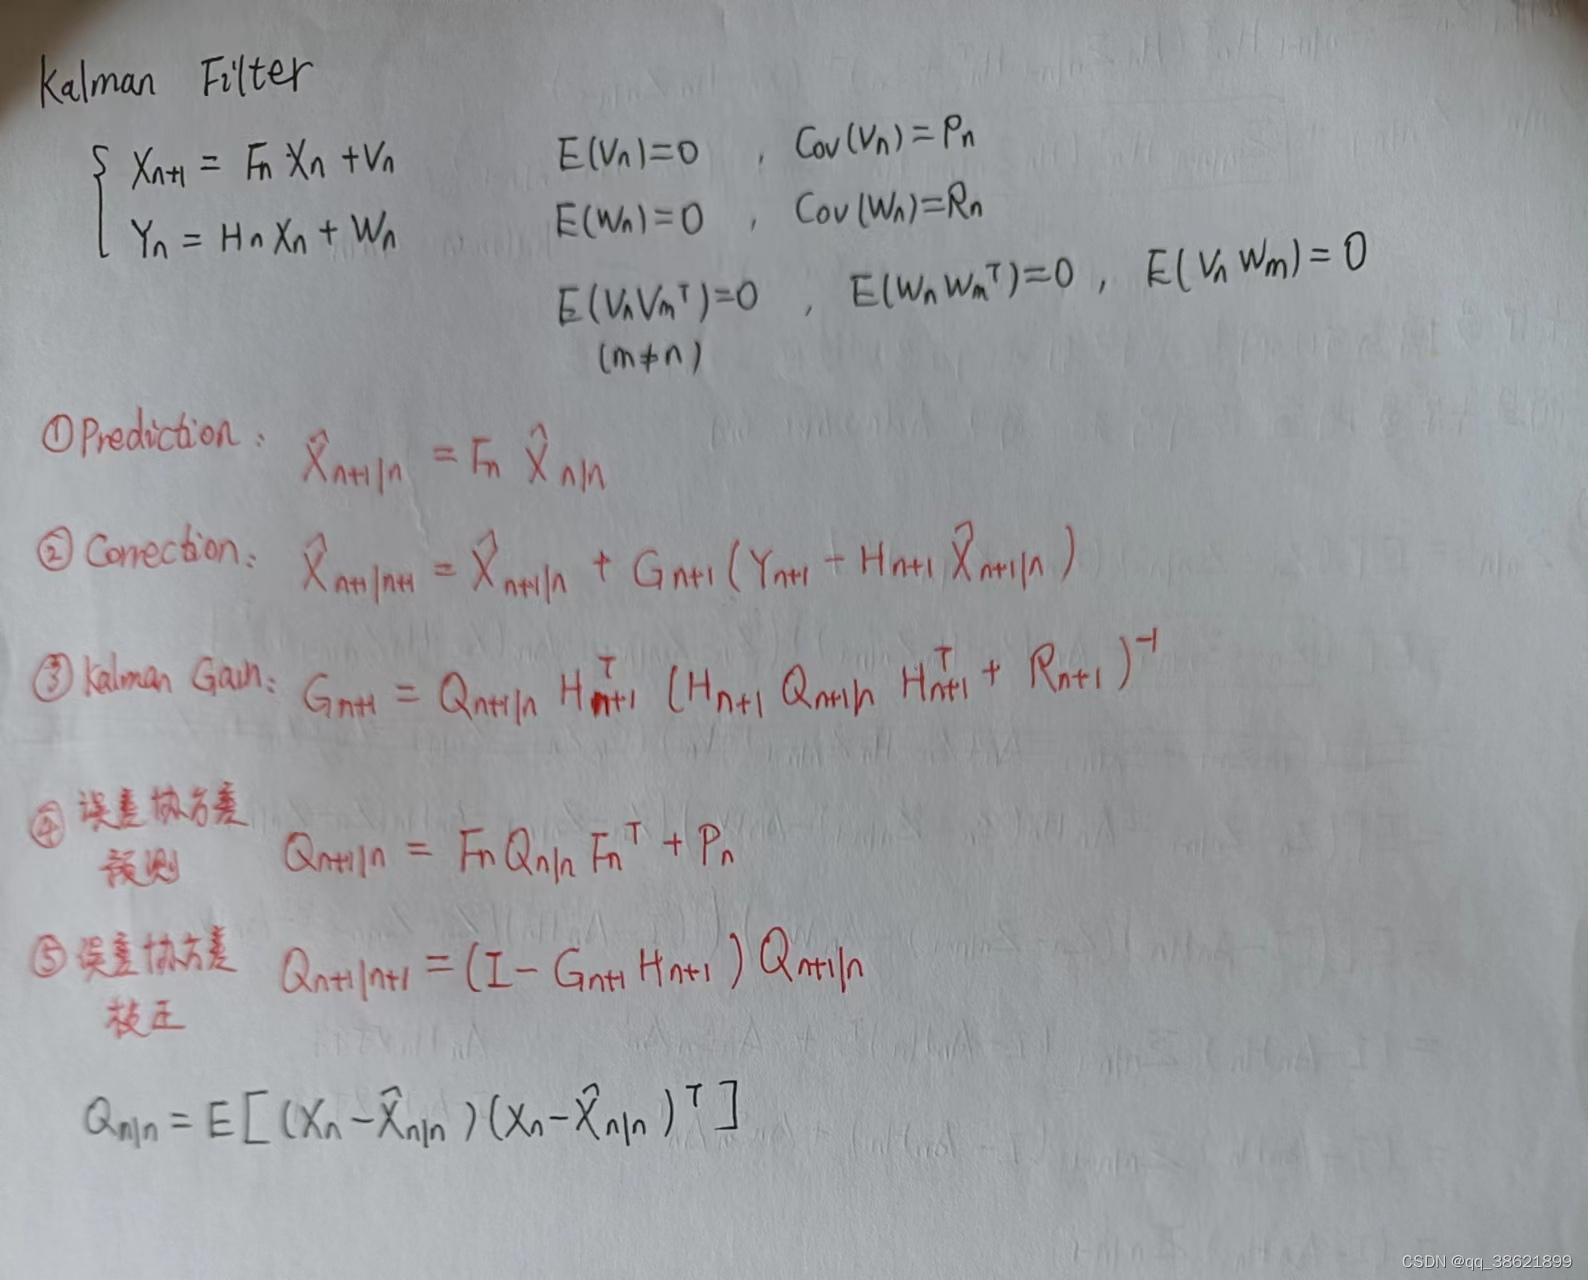 Kalman Filter
{ Xn+1 = Fn Xn + Vn    E(Vn)=0 , Cov(Vn)=Pn
Yn = Hn Xn + Wn    E(Wn)=0 , Cov(Wn)=Rn
E(VnVm^T)=0 , E(WnWm^T)=0 , E(VnWm)=0
(m≠n)
①Prediction: X̂n+1|n = Fn X̂n|n
②Correction: X̂n+1|n+1 = X̂n+1|n + Gn+1(Yn+1 - Hn+1 X̂n+1|n)
③Kalman Gain: Gn+1 = Qn+1|n Hn+1^T (Hn+1 Qn+1|n Hn+1^T + Rn+1)^-1
④误差协方差
预测 Qn+1|n = Fn Qn|n Fn^T + Pn
⑤误差协方差
校正 Qn+1|n+1 = (I - Gn+1 Hn+1) Qn+1|n
Qn|n = E[(Xn - X̂n|n)(Xn - X̂n|n)^T]
CSDN @qq_38621899